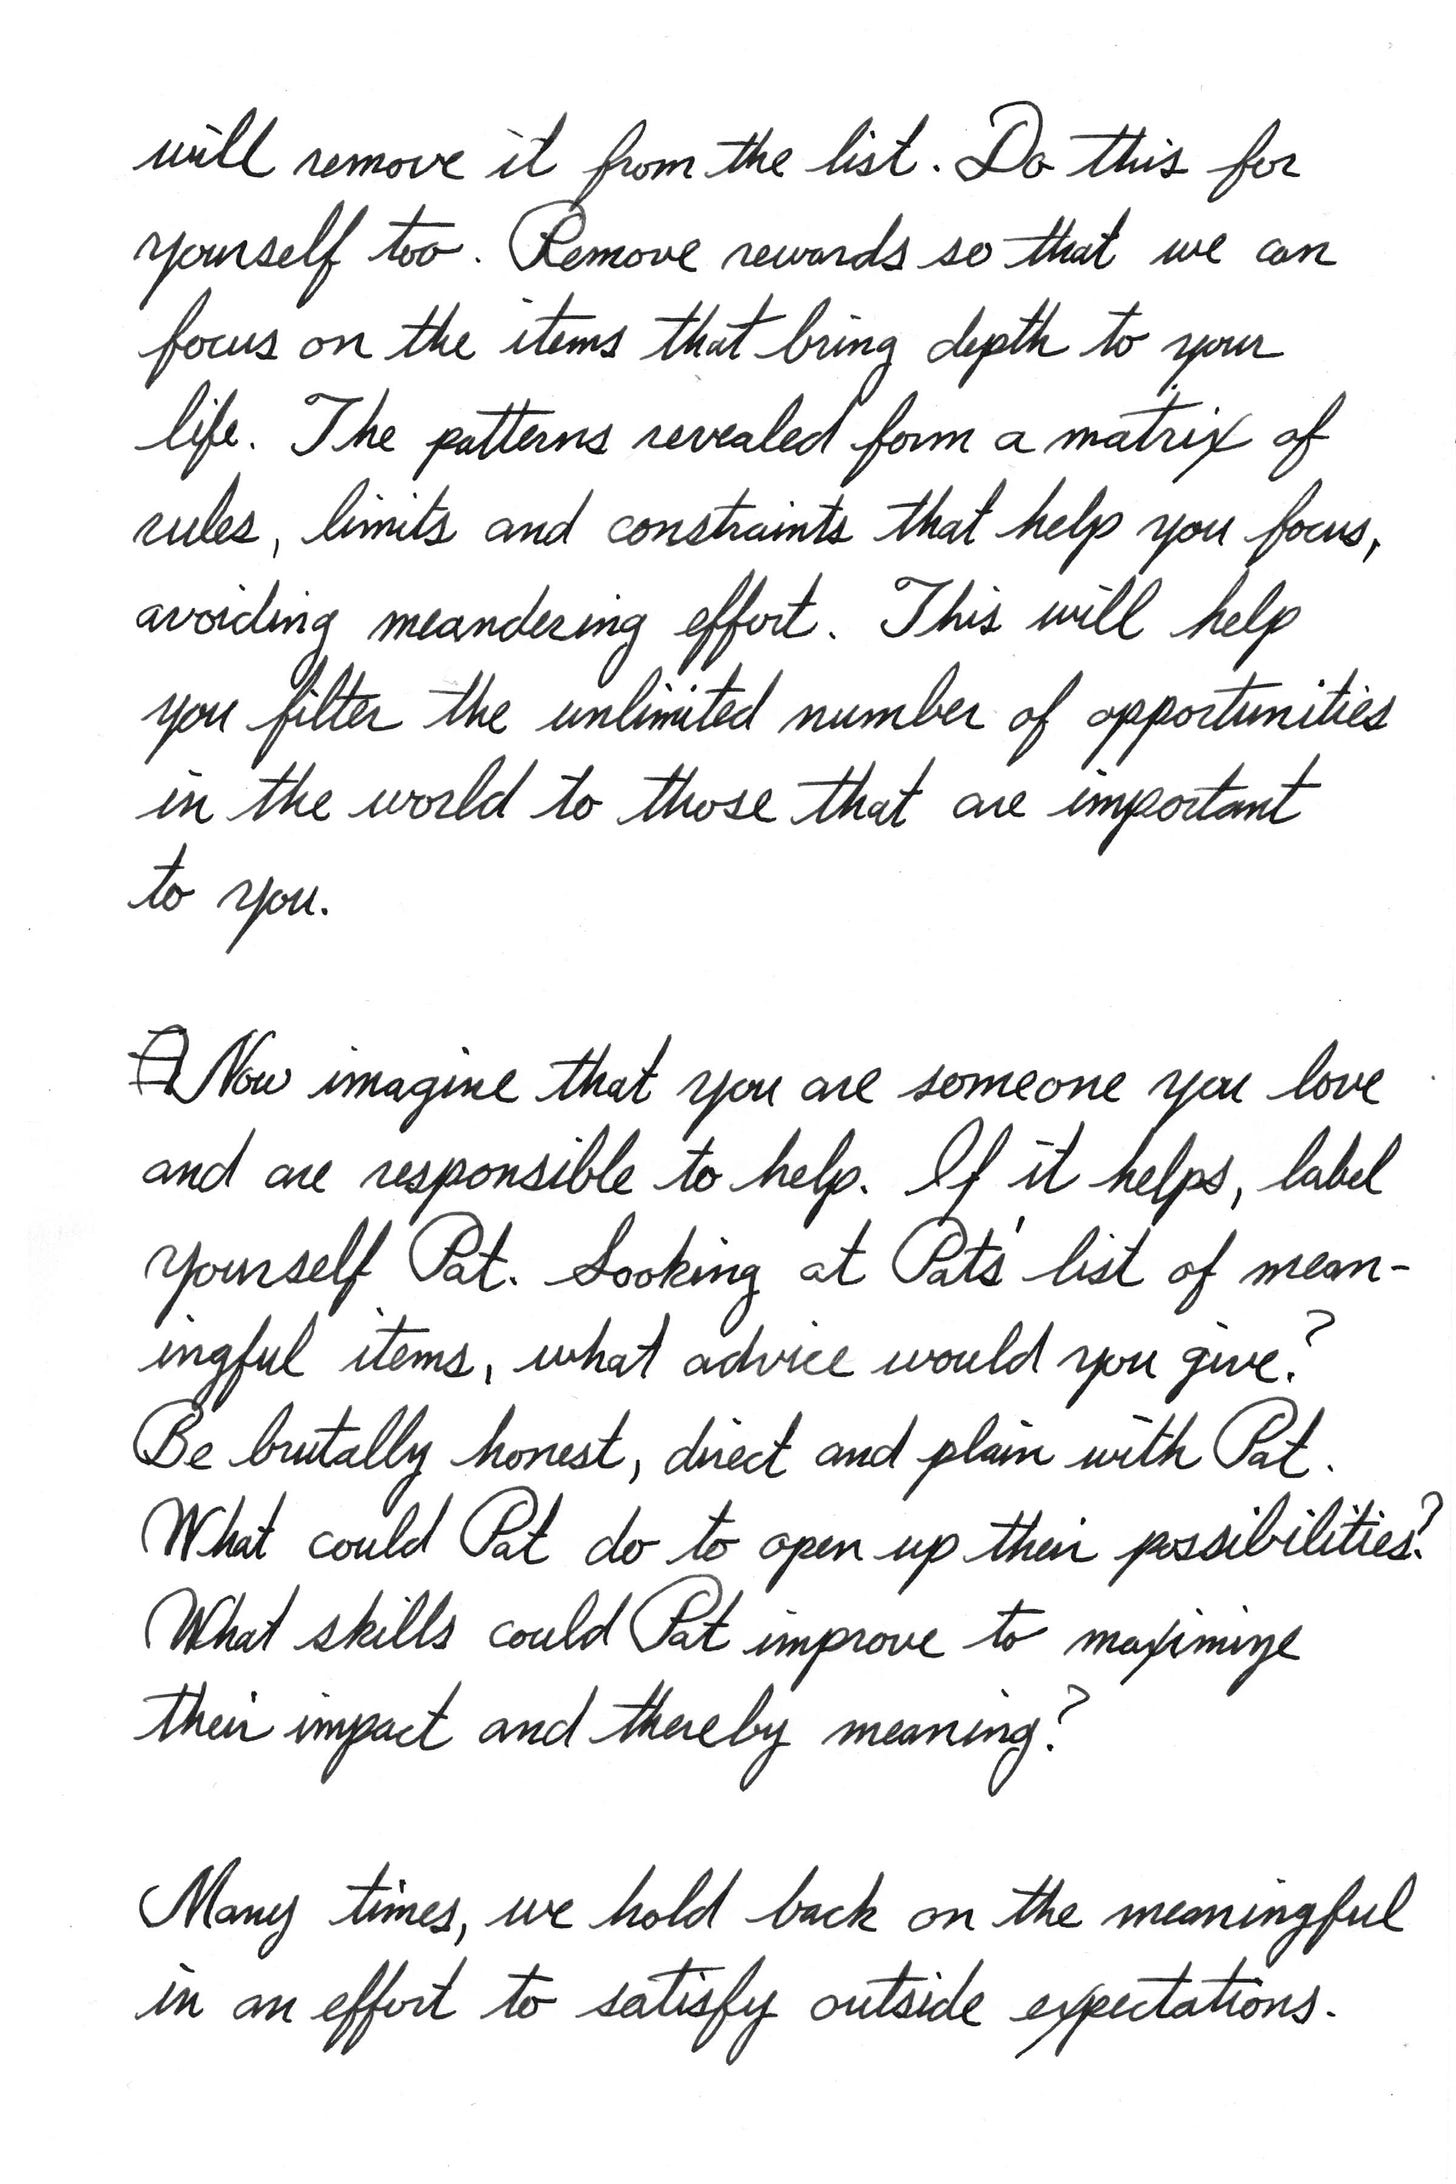 will remove it from the list. Do this for
yourself too. Remove rewards so that we can
focus on the items that bring depth to your
life. The patterns revealed form a matrix of
rules, limits and constraints that help you focus,
avoiding meandering effort. This will help
you filter the unlimited number of opportunities
in the world to those that are important
to you.
Now imagine that you are someone you love
and are responsible to help. If it helps, label
yourself Pat. Looking at Pat's list of mean-
ingful items, what advice would you give?
Be brutally honest, direct and plain with Pat.
What could Pat do to open up their possibilities?
What skills could Pat improve to maximize
their impact and thereby meaning?
Many times, we hold back on the meaningful
in an effort to satisfy outside expectations.